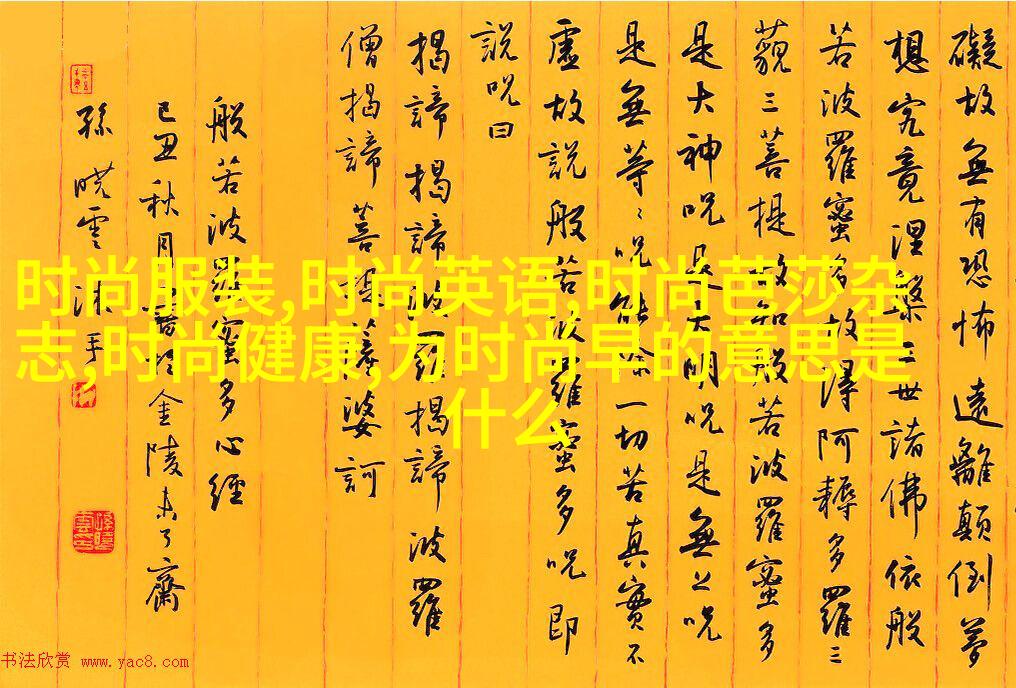 礙故無有恐怖遠離顛倒夢
想究竟涅槃三世諸佛依般
若波羅蜜多故得阿耨多羅三
藐三菩提故知般若波羅蜜多
是大神呪是大明呪是無上呪
是無等々呪能除一切苦真實不
虛故說般若波羅蜜多呪即
說呪曰
揭諦揭諦波羅揭諦波羅
僧揭諦菩提薩婆訶
般若波羅蜜多心經
己丑秋月書於金陵未了齋
孫曉雲沐手
时尚服装,时尚英语,时尚芭莎杂
志,时尚健康,为时尚早的意思是
什么
书法欣赏 www.yac8.com